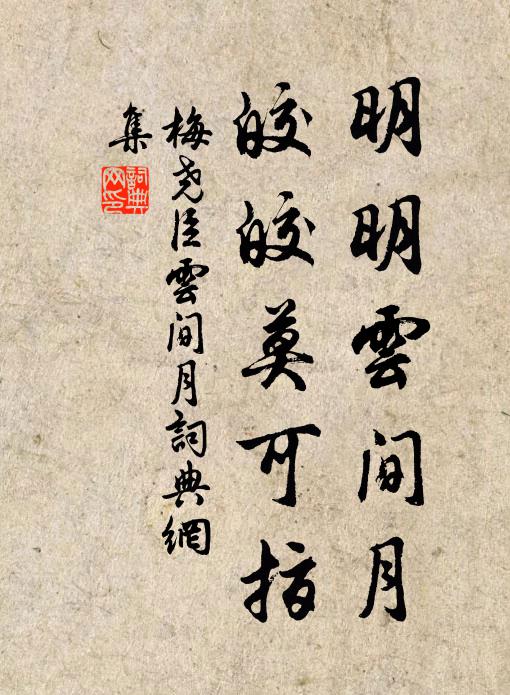 明明雲间月
皎皎莫可指
梅尧臣雲间月詞典網
集
詞典
网印